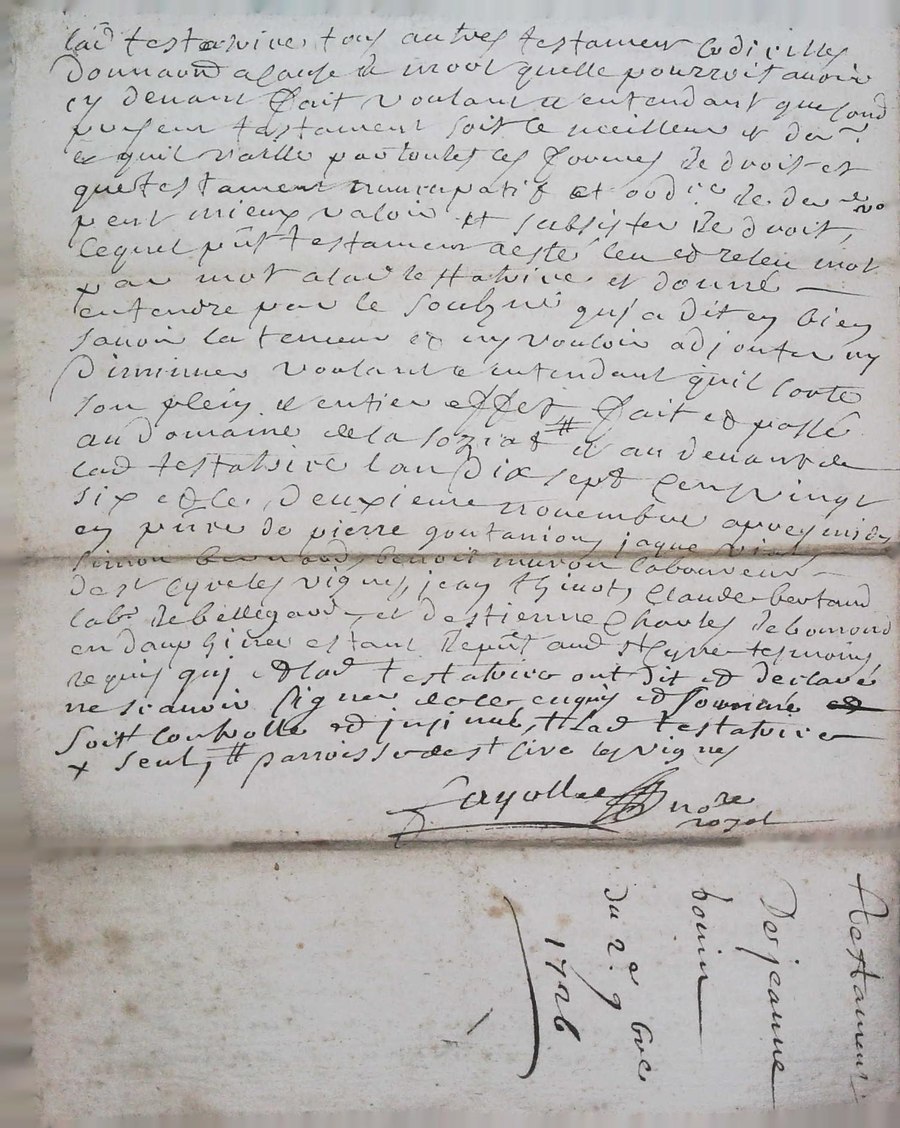 lad testatrice tous autres testament codicilles
donnaond a cause de mort quelle pourroit avoir
cy devant fait voulant et entendant que sond
present testament soit le meilleur et der
& quil vaille par toutes les formes de droit et
que testament nuncupatif et codice de der
peut mieux valoir et subsister de droit,
lequel pnt testament a esté leu et releu mot
par mot a lad testatrice et donné
entendre par le soubzné qui a dit en bien
savoir la teneur et ny vouloir adjouter ny
diminuer voulant & entendant quil sorte
son plein et entier effet fait et passé
au domaine de la # et au devant de
lad testatrice lan dix sept cens vingt
six et le deuxieme novembre apres midy
en pnce de pierre goutanion jaque
simon benoit laboureur
de st cyre les vignes, jean thinot, Claude bertand
lab. de bellegard, et destienne Charles de bomond
en dauphiner estant de pnt aud st Cyre tesmoins
requis qui et lad testatrice ont dit et declaré
ne scavoir signer de ce enquis et sommé
soit controllé et insinué, lad testatrice
x seul, # parroisse de st Cire les vignes
fayolle nore
royal
Testament
De jeanne
bonin
du 2e 9bre
1726